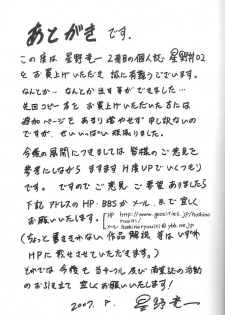 あとがきです.
この度は星野竜一 2冊目の個人誌,星野丼02
をお買上げいただき 誠に有難うございます。
なんとか… なんとか出す事ができました…
先回コピー本をお買上げいただいた方には
追加ページをあまり増やせず申し訳ない
のですが、せいいっぱい頑張りました。
今後の展開につきましては 皆様のご意見を
参考にしながら ますますH度UPでいくつもり
です。 ですので ご意見 ご要望ありましたら
下記アドレスのHP・BBSか メール まで宜しく
お願いいたします.
HP http://www.geocities.jp/hoshino
メール
(ちょっと書ききれない 作品解説 等は いずれ
HPに 載せさせていただきます.)
それでは 今後も 当サークル及び 商業誌の活動
のお引き立て 宜しくお願いいたします!
2007.